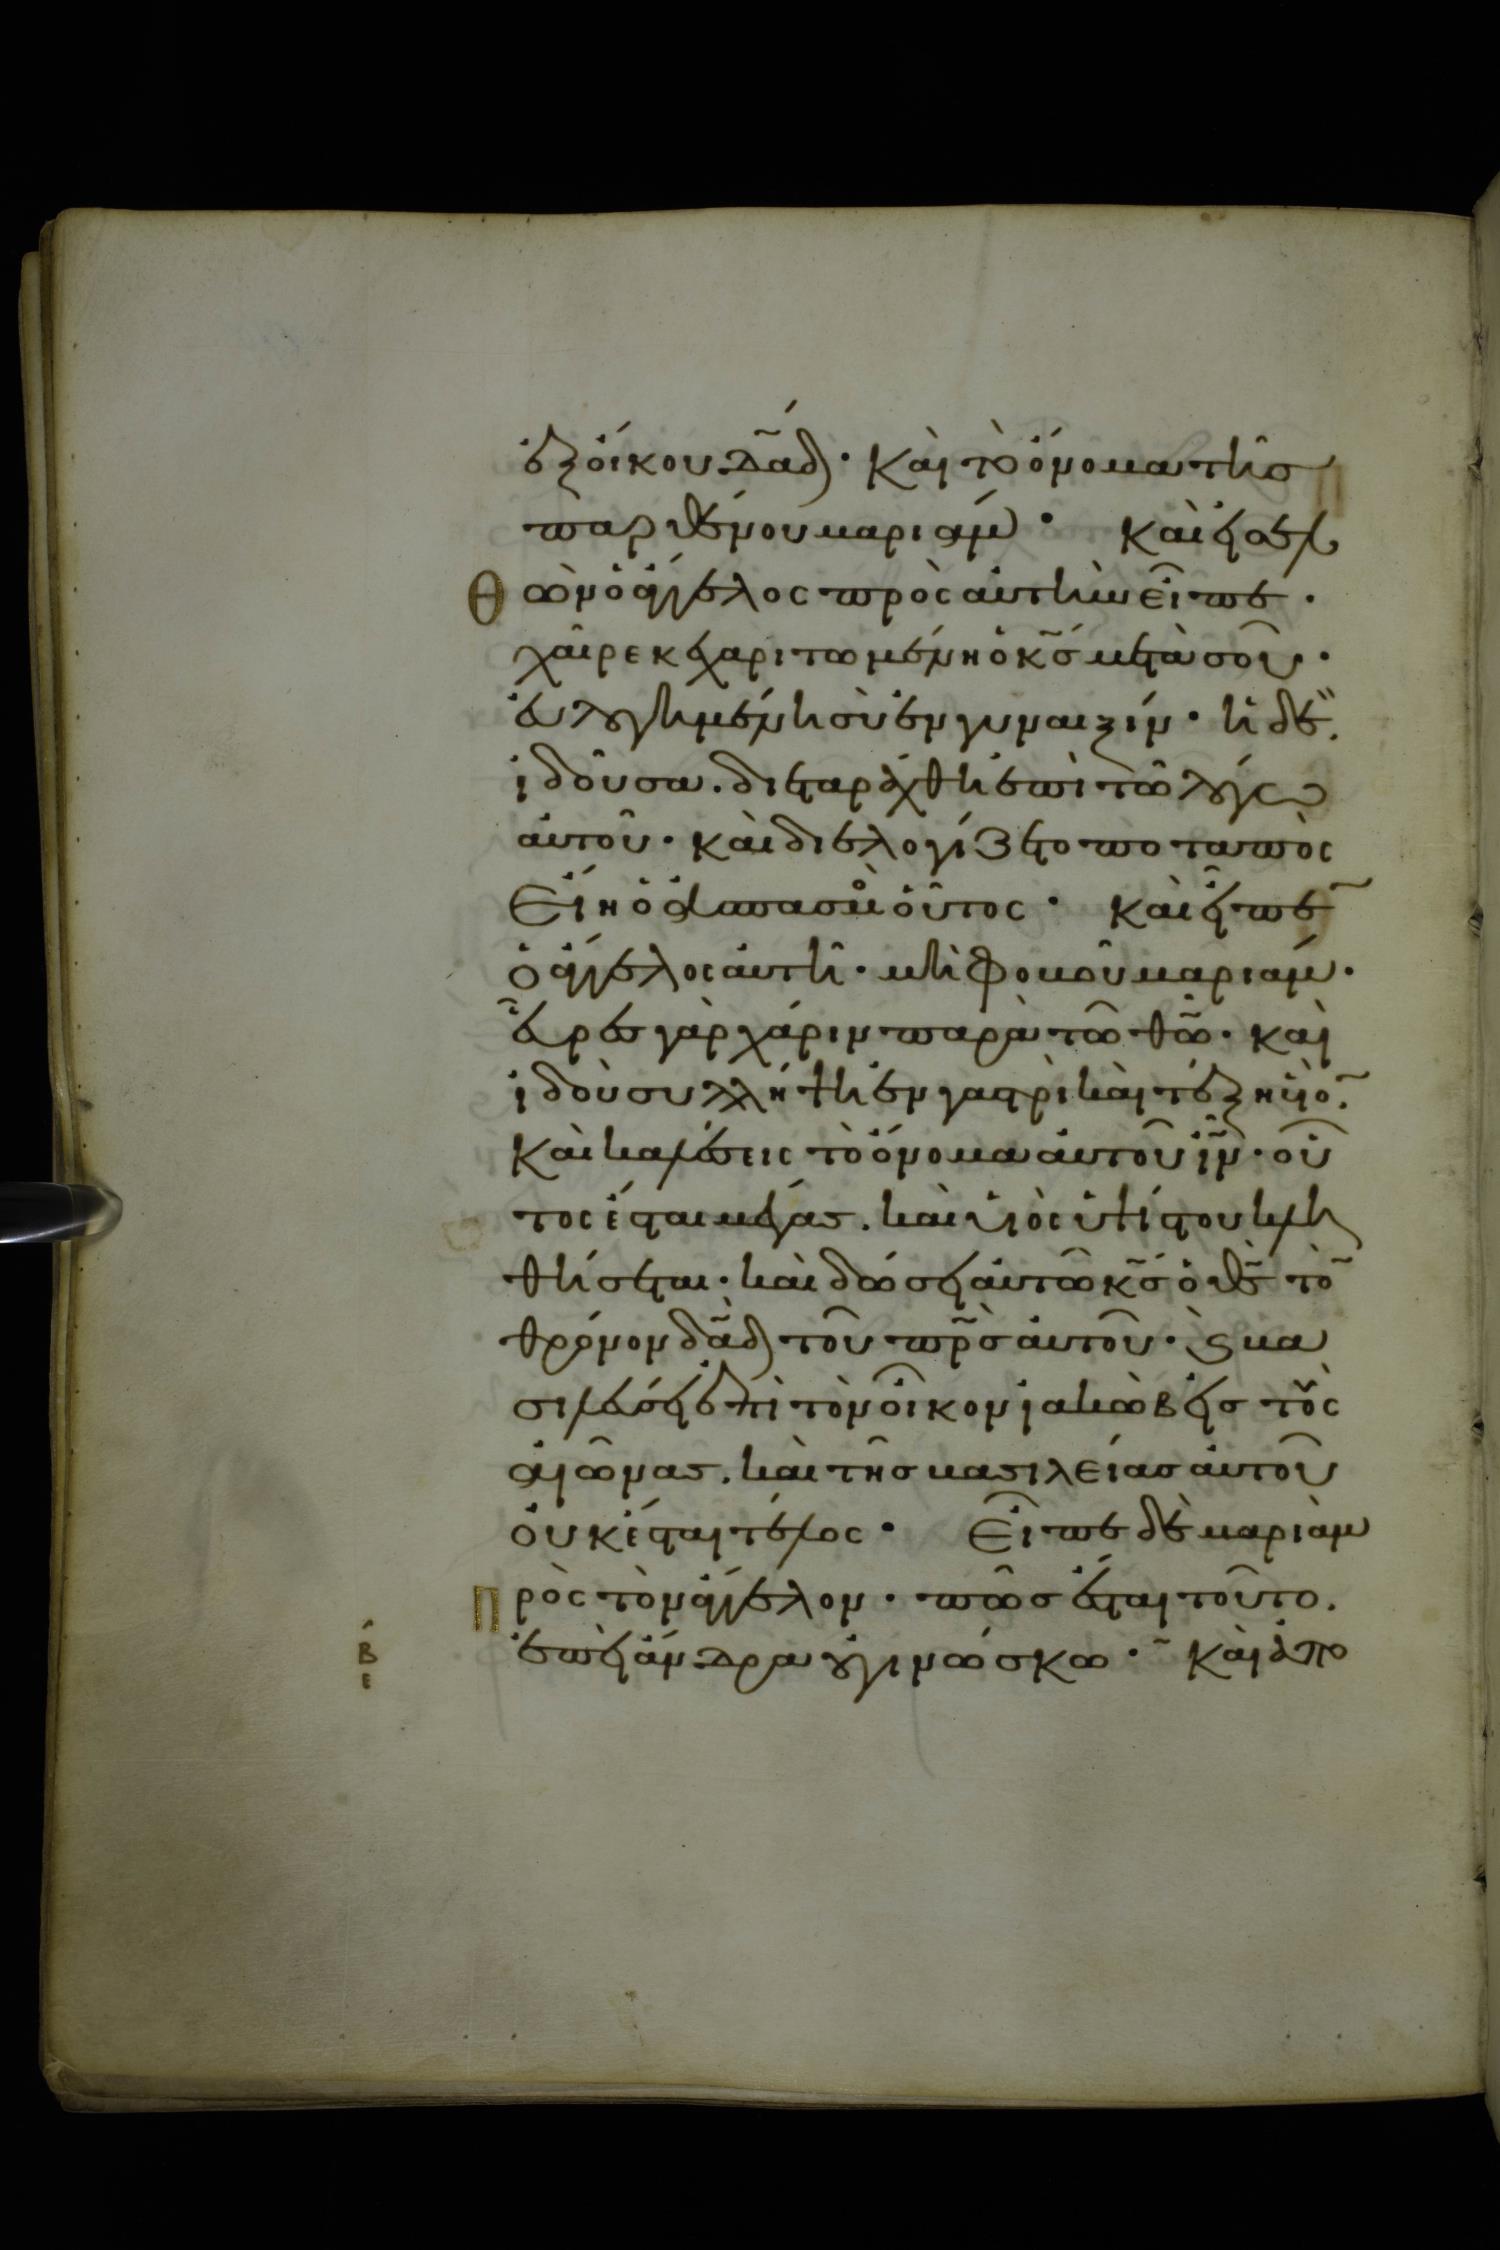 ἐξ οἴκου δα̃δ· καὶ τὸ ὄνομα τῆς
παρθένου μαριάμ· καὶ εἰσελ
θὼν ὁ ἄγγελος πρὸς αὐτὴν εἶπε·
χαῖρε κεχαριτωμένη ὁ κ̃ς μετὰ σοῦ·
εὐλογημένη σὺ ἐν γυναιξίν· ἡ δὲ
ἰδοῦσα. διεταράχθη ἐπὶ τῶ λόγω
αὐτοῦ· καὶ διελογίζετο ποταπὸς
εἴη ὁ ἀσπασμὸς οὗτος· καὶ εἶπεν
ὁ ἄγγελος αὐτῆ· μὴ φοβοῦ μαριάμ·
εὗρες γὰρ χάριν παρὰ τῶ θ̃ῶ· καὶ
ἰδοὺ συλλήψη ἐν γαστρὶ καὶ τέξη υἱόν.
καὶ καλέσεις τὸ ὄνομα αὐτοῦ ι̃ν· οὗ
τος ἔσται μέγας. καὶ υἱὸς ὑψίστου κλη
θήσεται· καὶ δώσει αὐτῶ κ̃ς ὁ θ̃ς τὸν
θρόνον δα̃δ τοῦ π̃ρς αὐτοῦ· καὶ βα
σιλεύσει ἐπὶ τὸν οἶκον ἰακὼβ εἰς τοὺς
αἰῶνας. καὶ τῆς βασιλείας αὐτοῦ
οὐκ ἔσται τέλος· εἶπε δὲ μαριὰμ
πρὸς τὸν ἄγγελον· πῶς ἔσται τοῦτο.
ἐπεὶ ἄνδρα οὐ γινώσκω· καὶ ἀπο
β
ε